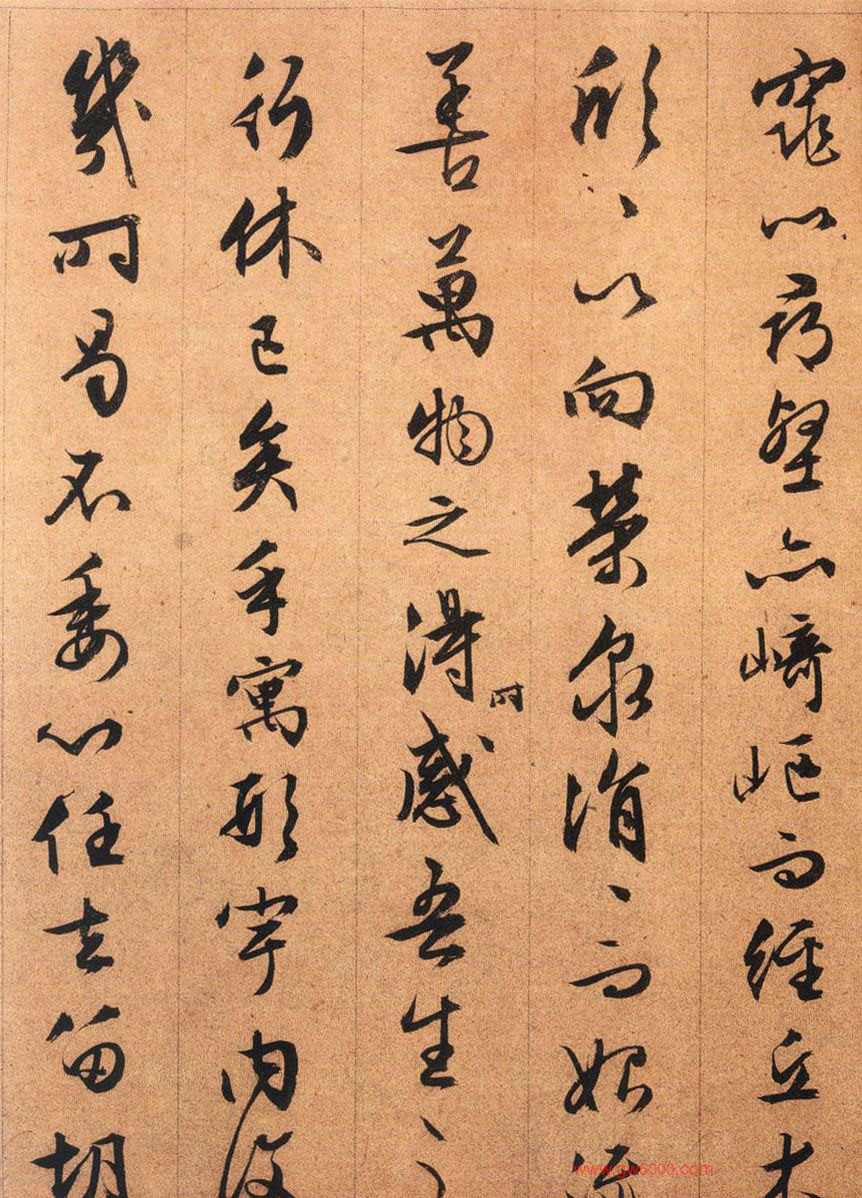 窕以尋壑亦崎岖而經丘木
欣〻以向榮泉涓〻而始流
善萬物之得時感吾生〻
行休已矣乎寓形宇內復
幾時曷不委心任去留胡
www.gw6000.com